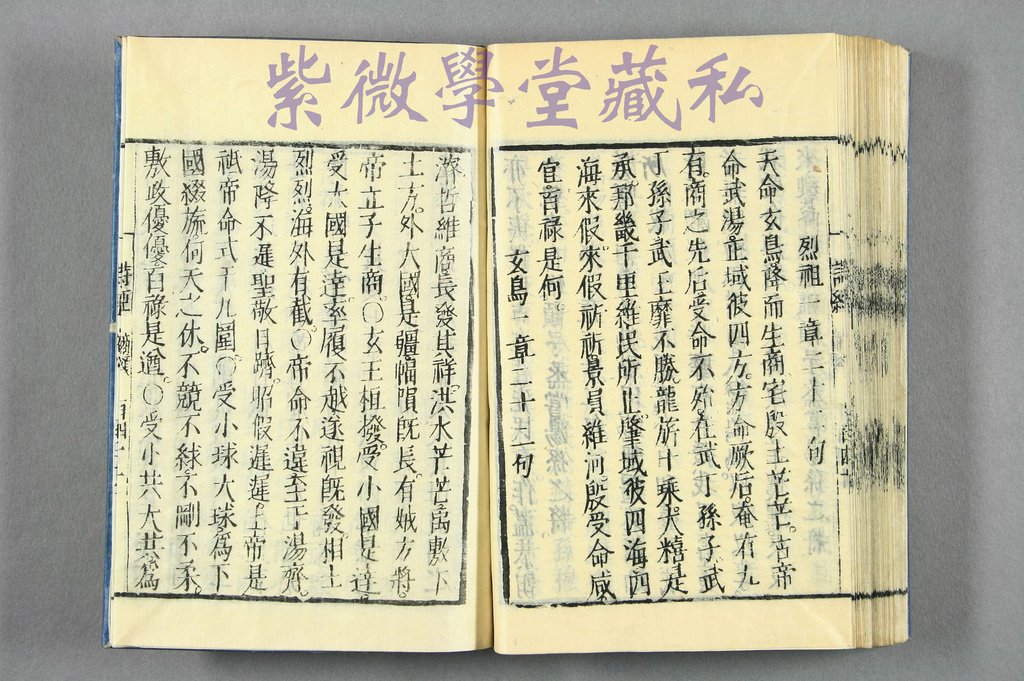 紫微學堂藏私
烈祖一章二十二句
天命玄鳥降而生商宅殷土芒芒。古帝
命武湯正域彼四方。方命厥后。奄有九
有。商之先后受命不殆在武丁孫子武
丁孫子武王靡不勝。龍旂十乘。大糦是
承邦畿千里維民所止。肇域彼四海四
海來假來假祈祈景員維河。殷受命咸
宜百祿是何
玄鳥一章二十二句
濬哲維商長發其祥。洪水芒芒。禹敷下
土方。外大國是疆幅隕既長。有娀方將
帝立子生商〇玄王桓撥。受小國是達
受大國是達。率履不越遂視既發。相土
烈烈。海外有截。〇帝命不違至于湯齊。
湯降不遲聖敬日躋。昭假遲遲上帝是
祗帝命式于九圍〇受小球大球為下
國綴旒何天之休。不競不絿。不剛不柔。
敷政優優。百祿是遒。〇受小共大共為